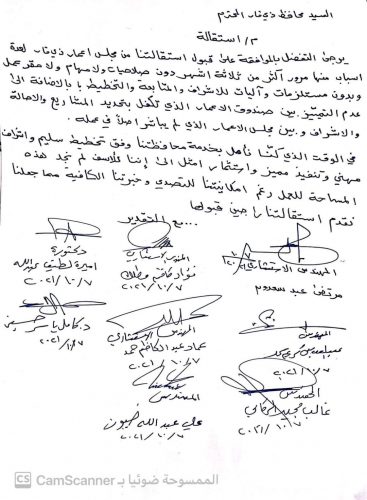 السيد محافظ ذي قار المحترم
م/ استقالة
يرجى التفضل بالموافقة على قبول استقالتنا من مجلس اعمار ذي قار لعدة
اسباب منها مرور أكثر من ثلاثة اشهر دون صلاحيات ولا مهام ولا مقر عمل
وبدون مستلزمات وآليات للاشراف والمتابعة والتخطيط بالاضافة الى
عدم التمييز بين صندوق الاعمار الذي تكفل بتحديد المشاريع والاحالة
والاشراف وبين مجلس الاعمار الذي لم يباشر اصلاً في عمله.
في الوقت الذي كنا نأمل بخدمة محافظتنا وفق تخطيط سليم واشراف
مهني وتنفيذ مميز واستثمار امثل الا إننا للأسف لم نجد هذه
المساحة للعمل رغم امكانيتنا للتصدي وخبرتنا الكافية مما جعلنا
نقدم استقالتنا راجين قبولها
... مع التقدير
دكتورة
اميرة لطيف عبدالله
٢٠٢١/١٠/٧
المهندس استشاري
فؤاد
٢٠٢١/١٠/٧
المهندس الاستشاري
مرتضى عبد سعدون
د. كامل ياسر حسين
٢٠٢١/١٠/٧
المهندس الاستشاري
عماد عبد الكاظم حمد
٢٠٢١/١٠/٧
المهندس
٢٠٢١/١٠/٧
المهندس
علي عبد الله
٢٠٢١/١٠/٧
المهندس
غالب مجيد الركابي
٢٠٢١/١٠/٧
CS CamScanner الممسوحة ضوئيا بـ